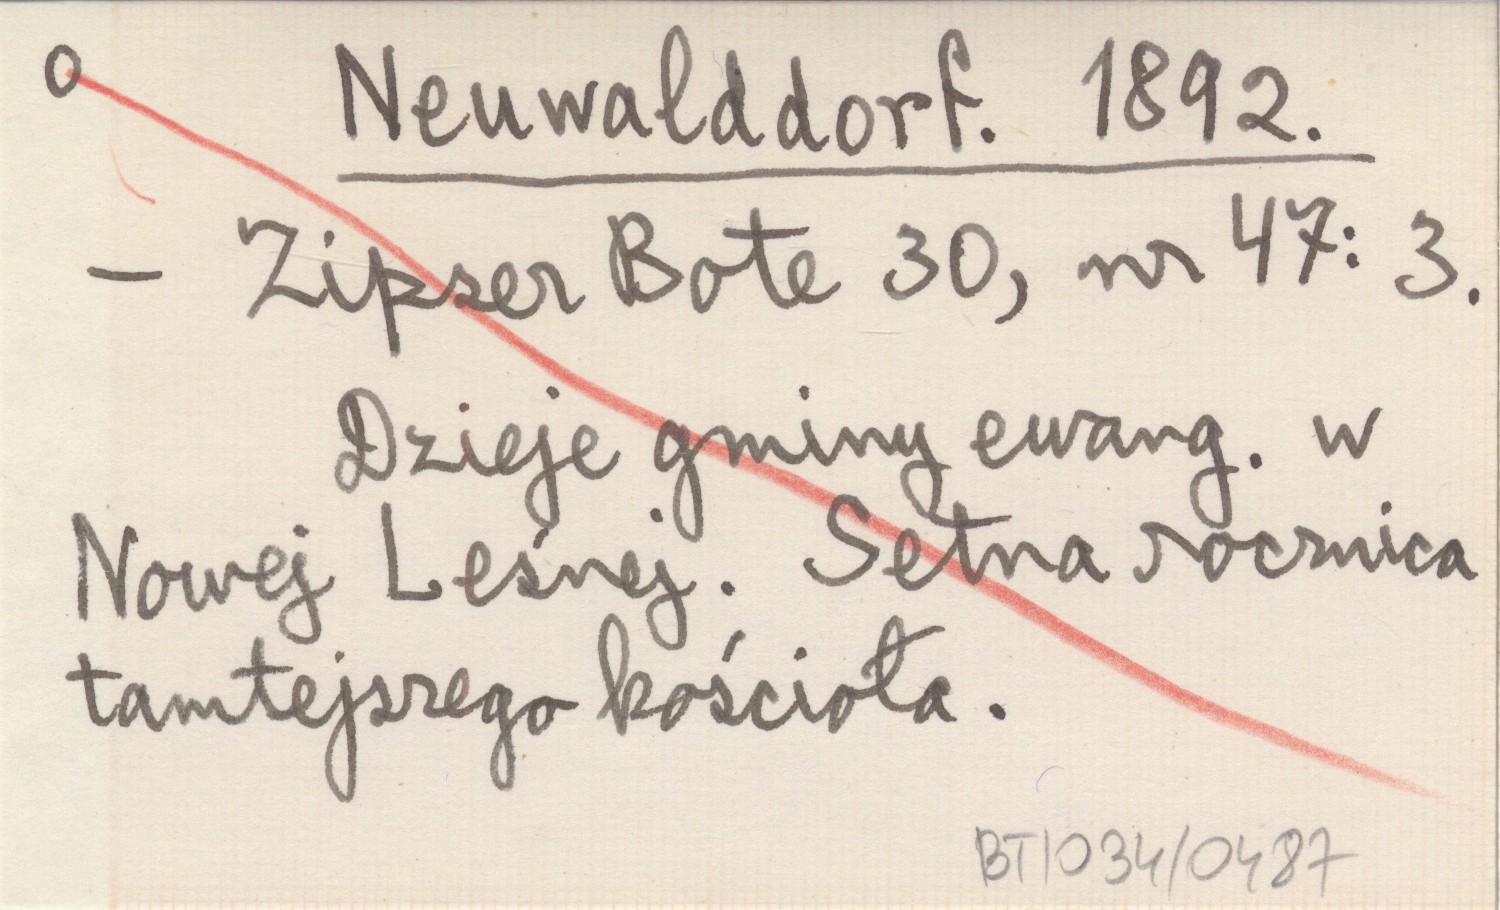 o Neuwalddorf. 1892.
– Zipser Bote 30, nr 47: 3.
Dzieje gminy ewang. w
Nowej Leśnej. Setna rocznica
tamtejszego kościoła.
BT/034/0487